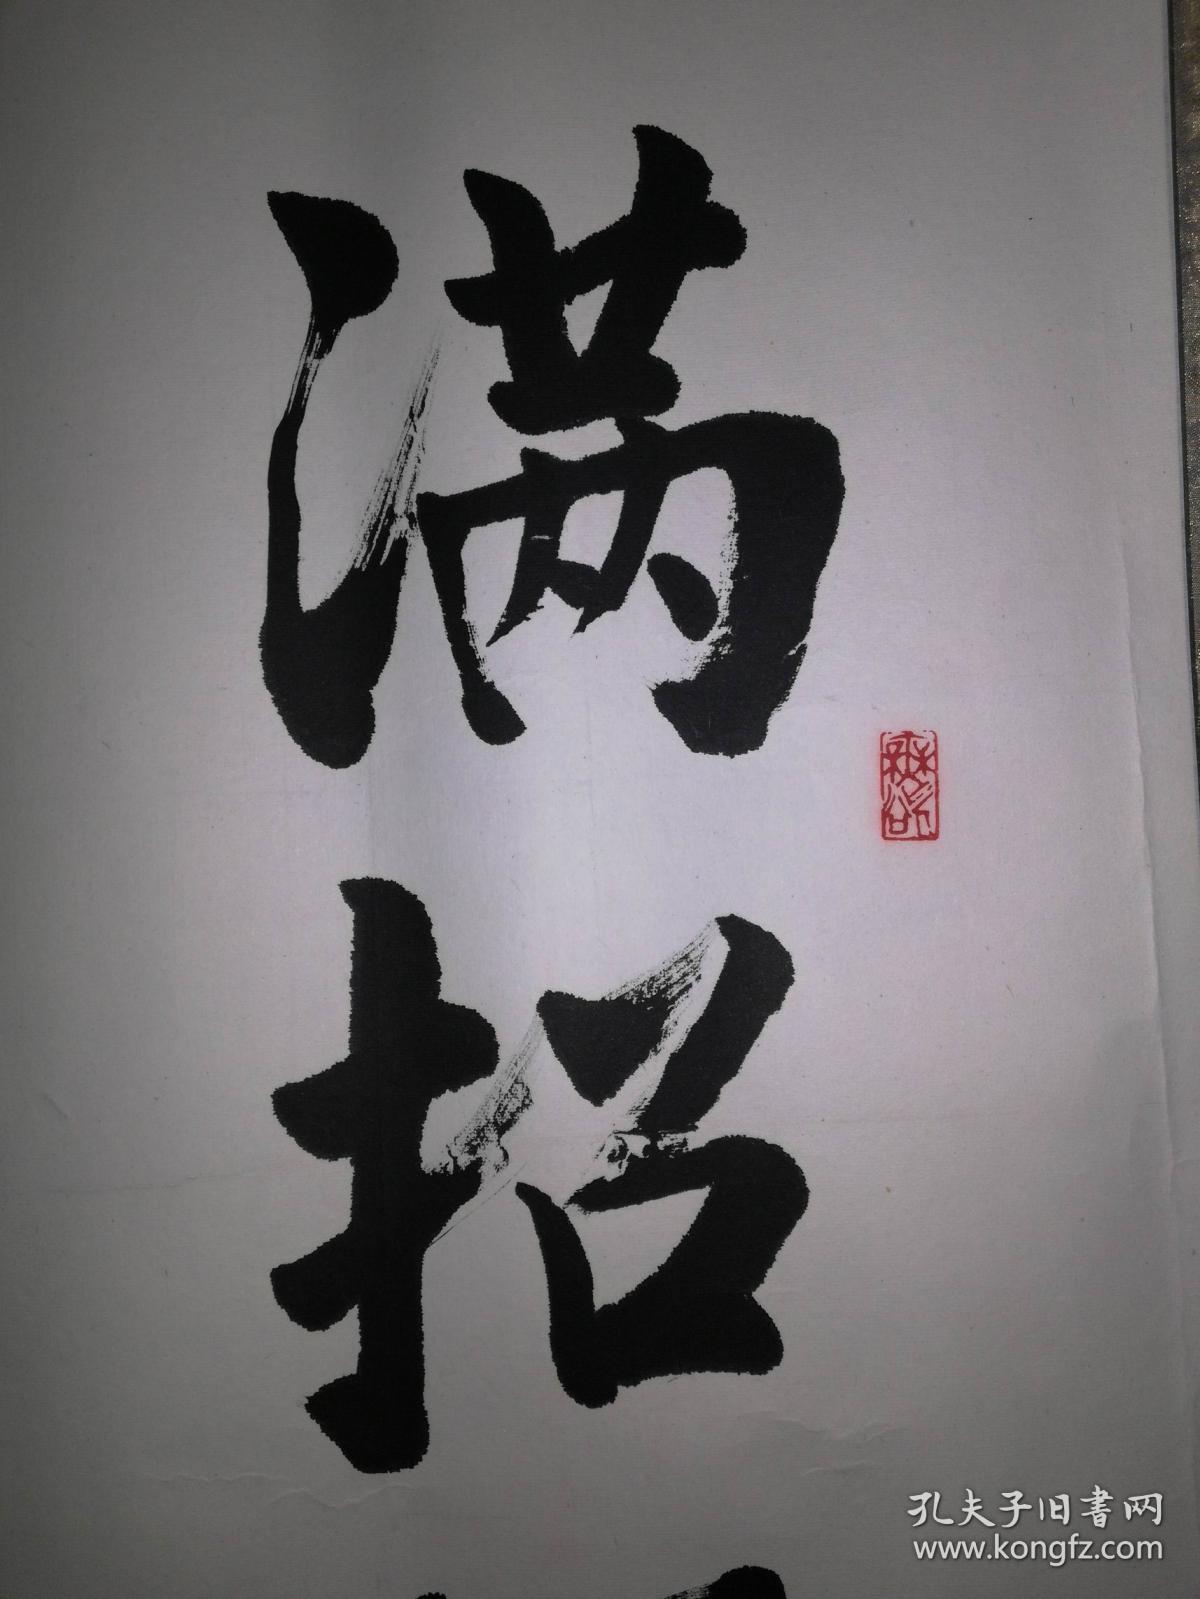 满招
孔夫子旧書网
www.kongfz.com